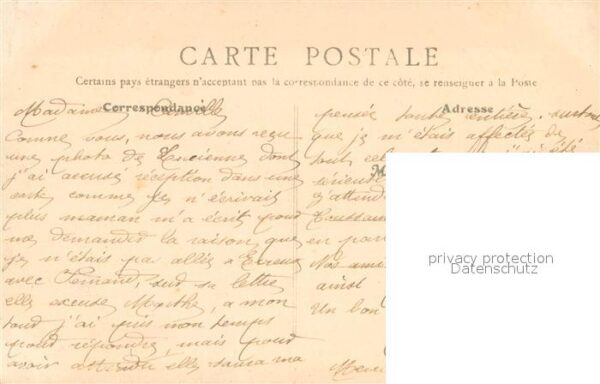 CARTE POSTALE
Certains pays étrangers n'acceptant pas la correspondance de ce côté, se renseigner à la Poste
Correspondance
Adresse
Madame Camille
Comme vous, nous avons reçu
une photo de dont
j'ai accusé réception dans une
carte comme je n'écrivais
plus maman m'a écrit pour
me demander la raison, que
je n'étais pas allée à Evreux
avec Fernand, sur sa lettre
elle excuse Marthe, a mon
tour j'ai pris mon temps
pour répondre, mais pour
avoir attendu elle saura ma
pensée toute entière, surtout
que je m'étais affectée de
tout
j'attend
Toussain
en par
Nos ami
ainsi
Un bon
privacy protection
Datenschutz